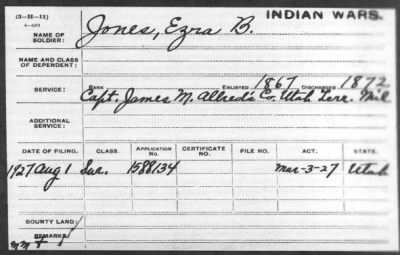 (3-H-11)
INDIAN WARS.
NAME OF SOLDIER: Jones, Ezra B.
NAME AND CLASS OF DEPENDENT:
SERVICE: RANK ENLISTED 1867 DISCHARGED 1872
Capt. James M. Allred's Co. Utah Terr. Mil
ADDITIONAL SERVICE:
DATE OF FILING. CLASS. APPLICATION NO. CERTIFICATE NO. FILE NO. ACT. STATE.
1927 Aug 1 Sur. 1588134 Mar-3-27 Utah
BOUNTY LAND:
REMARKS: